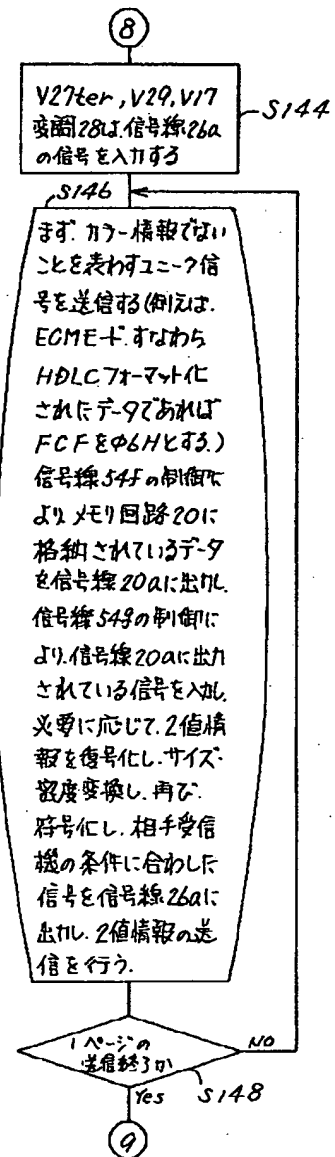 8
V27ter, V29, V17
変調28は、信号線26a
の信号を入力する
S144
S146
まず、カラー情報でない
ことを表わすユニーク信
号を送信する(例えば、
ECMモード、すなわち
HDLCフォーマット化
されたデータであれば
FCFをφ6Hとする。)
信号線54fの制御に
より、メモリ回路20に
格納されているデータ
を信号線20aに出力し、
信号線54gの制御に
より、信号線20aに出力
されている信号を入力し、
必要に応じて、2値情
報を復号化し、サイズ・
密度変換し、再び、
符号化し、相手受信
機の条件に合わした
信号を信号線26aに
出力し、2値情報の送
信を行う。
1ページの
送信終了か
NO
Yes
S148
9